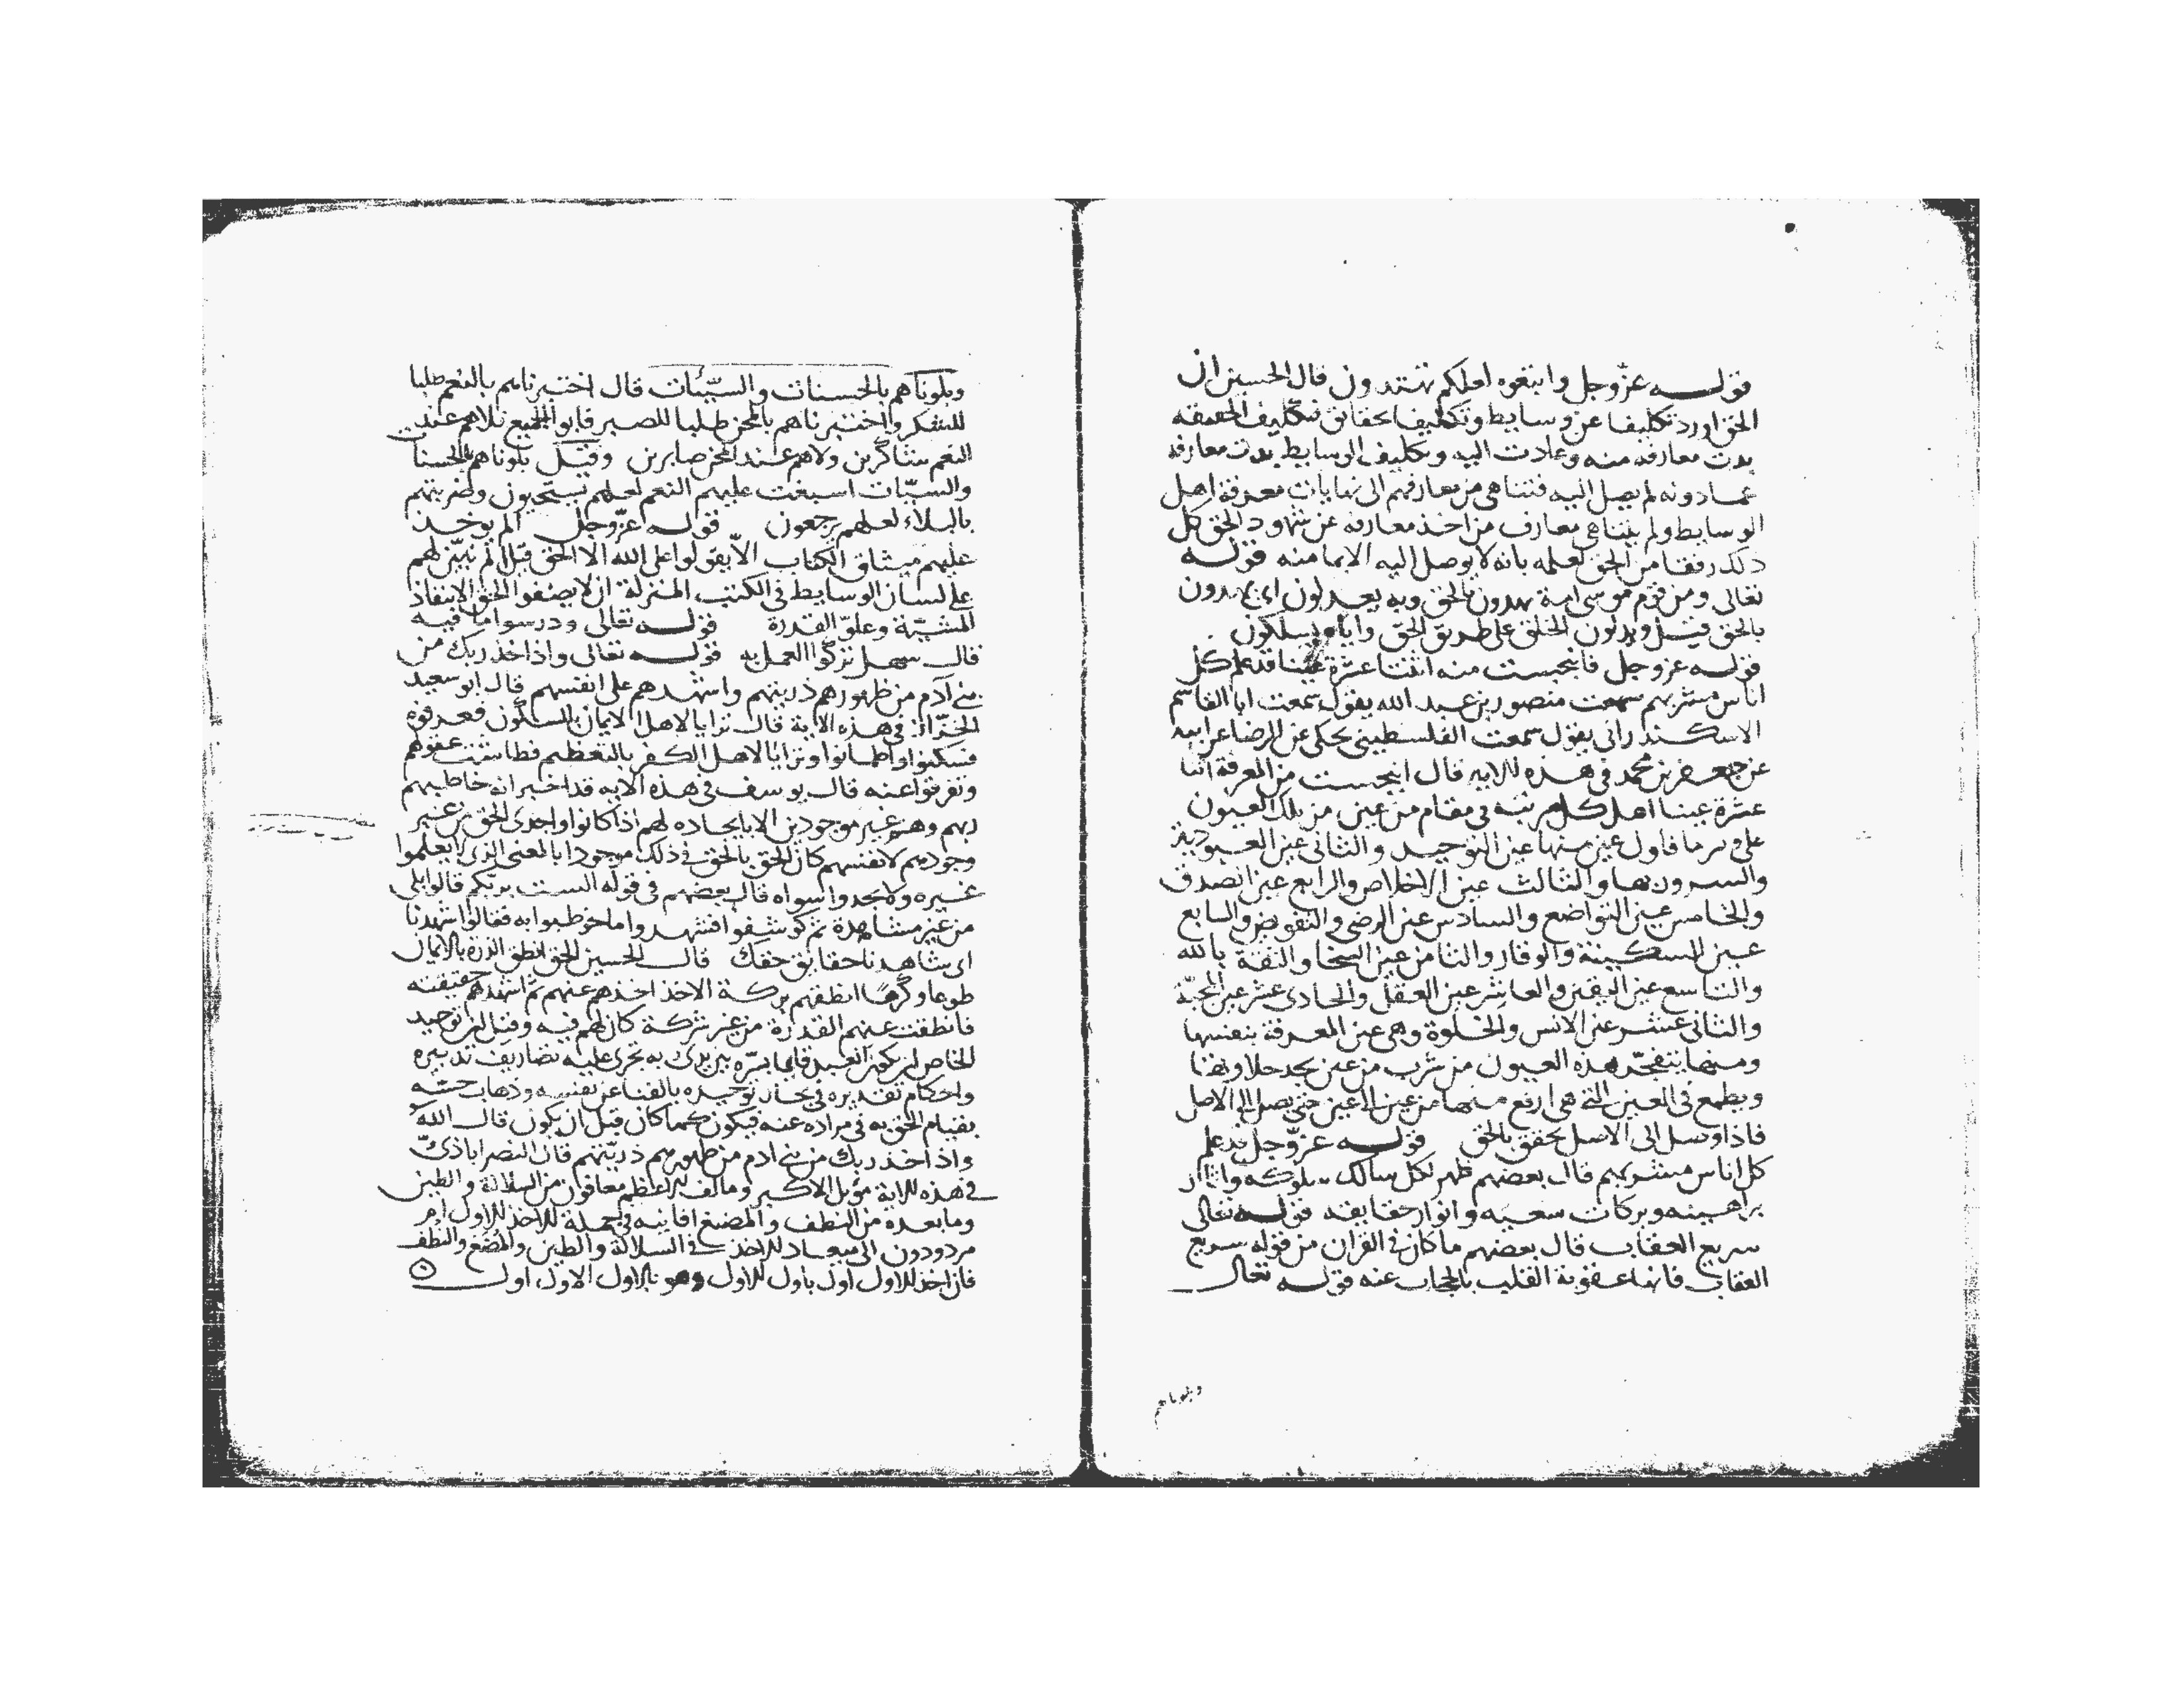 قوله عز وجل واتبعوه لعلكم تهتدون قال الحسين ان
الحق اورد تكليفا عن وسايط وتكليفا بحقايق فتكليف الحقيقة
بدت معارفه منه وعادت اليه وتكليف الوسايط بدت معارفه
عمادونه لم يصل اليه فتناهى من معارفهم الى نهايات معرفة اهل
الوسايط ولم يتناهى معارف من اخذ معارفه عن شهود الحق كل
ذلك رفقا من الحق لعلمه بانه لا يوصل اليه الا بما منه قوله
تعالى ومن قوم موسى امة يهدون بالحق وبه يعدلون اى يهدون
بالحق قيل ويدلون الخلق على طريق الحق واياه يسلكون
قوله عز وجل فانبجست منه اثنتا عشرة عينا قد علم كل
اناس مشربهم سمعت منصور بن عبد الله يقول سمعت ابا القاسم
الاسكندرانى يقول سمعت الفلسطينى يحكى عن الرضا عن ابيه
عن جعفر بن محمد فى هذه الاية قال انبجست من المعرفة اثنتا
عشرة عينا اهل كل مرتبة فى مقام من عين من تلك العيون
على فاول عين منها عين التوحيد والثانى عين العبودية
والسرور بها والثالث عين الاخلاص والرابع عين الصدق
والخامس عين التواضع والسادس عين الرضى والتفويض والسابع
عين السكينة والوقار والثامن عين السخا والثقة بالله
والتاسع عين اليقين والعاشر عين العقل والحادى عشر عين المحبة
والثانى عشر عين الانس والخلوة وهى عين المعرفة بنفسها
ومنها يتفجر هذه العيون من شرب من عين يجد حلاوتها
ويطمع فى العين التى هى ارفع منها من عين الى عين حتى يصل الى الاصل
فاذا وصل الى الاصل تحقق بالحق قوله عز وجل قد علم
كل اناس مشربهم قال بعضهم ظهر لكل سالك سلوكه واثار
براهينه وبركات سعيه وانوار حقايقه قوله تعالى
سريع العقاب قال بعضهم ما كان فى القران من قوله سريع
العقاب فانها عقوبة القلب بالحجاب عنه قوله تعالى
وبلوناهم
وبلوناهم بالحسنات والسيئات قال اختبرناهم بالنعم طلبا
للشكر واختبرناهم بالمحن طلبا للصبر فابوا الجميع فلاهم عند
النعم شاكرين ولاهم عند المحن صابرين وقيل بلوناهم بالحسنات
والسيئات اسبغت عليهم النعم لعلهم يستحيون وضربتهم
بالبلاء لعلهم يرجعون قوله عز وجل الم يوخذ
عليهم ميثاق الكتاب الا يقولوا على الله الا الحق قال الم نبين لهم
على لسان الوسايط فى الكتب المنزلة ان لا يصفوا الحق الا بنفاذ
المشية وعلو القدرة قوله تعالى ودرسوا ما فيه
قال سهل تركوا العمل به قوله تعالى واذ اخذ ربك من
بنى آدم من ظهورهم ذريتهم واشهدهم على انفسهم قال ابو سعيد
الخراز فى هذه الاية قال ترايا لاهل الايمان بالسكون فعرفوه
فسكنوا واطمانوا وترايا لاهل الكفر بالتعظيم فطاشت عقولهم
وتفرقوا عنه قال يوسف فى هذه الاية قد اخبر انه خاطبهم
ربهم وهم غير موجودين الا بايجاده لهم اذا كانوا واجدى الحق من غير
وجودهم لانفسهم كان الحق بالحق فى ذلك موجودا بالمعنى الذى لا يعلموا
غيره ولا يجدوا سواه قال بعضهم فى قوله الست بربكم قالوا بلى
من غير مشاهدة ثم كوشفوا فشهدوا ما خوطبوا به فقالوا شهدنا
اى شاهدنا حقايق حقك قال الحسين الحق انطق الذرة بالايمان
طوعا وكرها انطقهم بركة الاخذ اخذهم عنهم ثم اشهدهم حقيقته
فانطقت عنهم القدرة من غير شركة كان لهم فيه وقيل ان توحيد
الخاص ان يكون العبد قايما بسره بين يدى ربه تجرى عليه تصاريف تدبيره
واحكام تقديره فى بحار توحيده بالفنا عن نفسه وذهاب حسه
بقيام الحق به فى مراده عنه فيكون كما كان قبل ان يكون قال الله
واذ اخذ ربك من بنى ادم من ظهورهم ذريتهم قال النصراباذى
فى هذه الاية
وما بعده من النطف والمضغ للاخذ الاول ام
مردودون الى ميعاد الاخذ فى السلالة والطين والمضغ والنطف
فان اخذ الاول اول باول الاول وهو بالاول الاول اولى